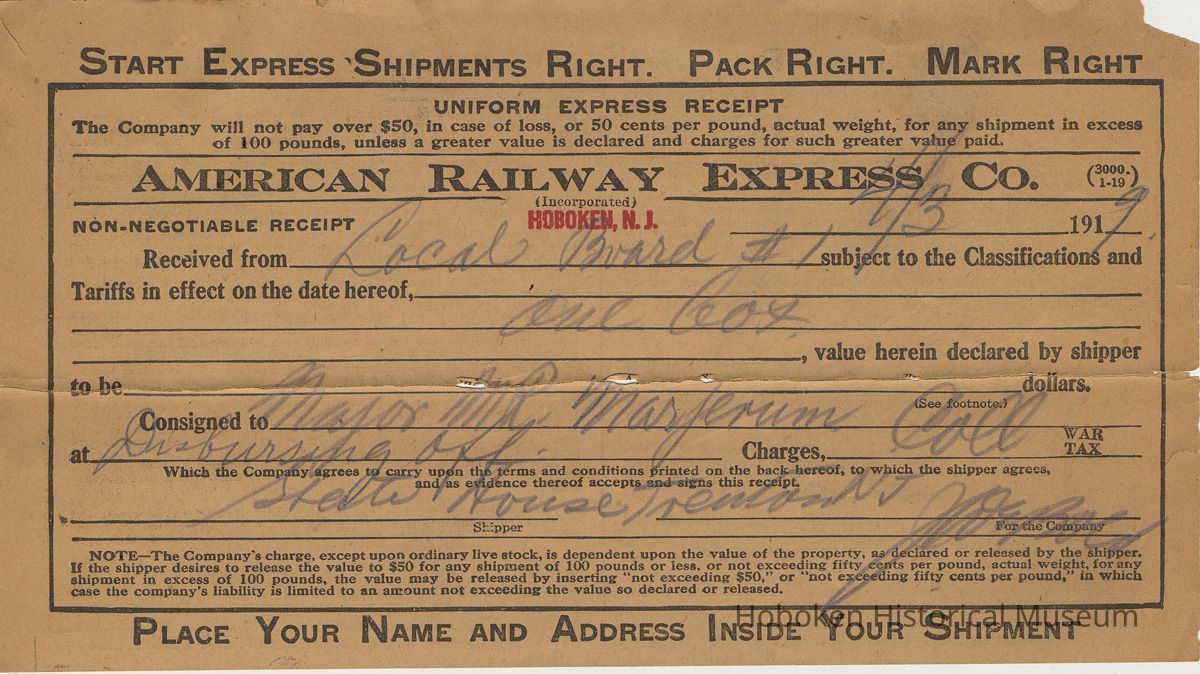 START EXPRESS SHIPMENTS RIGHT. PACK RIGHT. MARK RIGHT
UNIFORM EXPRESS RECEIPT
The Company will not pay over $50, in case of loss, or 50 cents per pound, actual weight, for any shipment in excess
of 100 pounds, unless a greater value is declared and charges for such greater value paid.
AMERICAN RAILWAY EXPRESS CO. (3000. 1-19)
(Incorporated)
NON-NEGOTIABLE RECEIPT HOBOKEN, N. J. 7/3 1919.
Received from Local Board #1, subject to the Classifications and
Tariffs in effect on the date hereof,
One box.
, value herein declared by shipper
to be dollars.
(See footnote.)
Consigned to Major Margerum Coll WAR
at Disbursing Off. Charges, TAX
Which the Company agrees to carry upon the terms and conditions printed on the back hereof, to which the shipper agrees,
and as evidence thereof accepts and signs this receipt.
State House Trenton NJ
Shipper For the Company
NOTE—The Company's charge, except upon ordinary live stock, is dependent upon the value of the property, as declared or released by the shipper.
If the shipper desires to release the value to $50 for any shipment of 100 pounds or less, or not exceeding fifty cents per pound, actual weight, for any
shipment in excess of 100 pounds, the value may be released by inserting "not exceeding $50," or "not exceeding fifty cents per pound," in which
case the company's liability is limited to an amount not exceeding the value so declared or released.
PLACE YOUR NAME AND ADDRESS INSIDE YOUR SHIPMENT
Hoboken Historical Museum